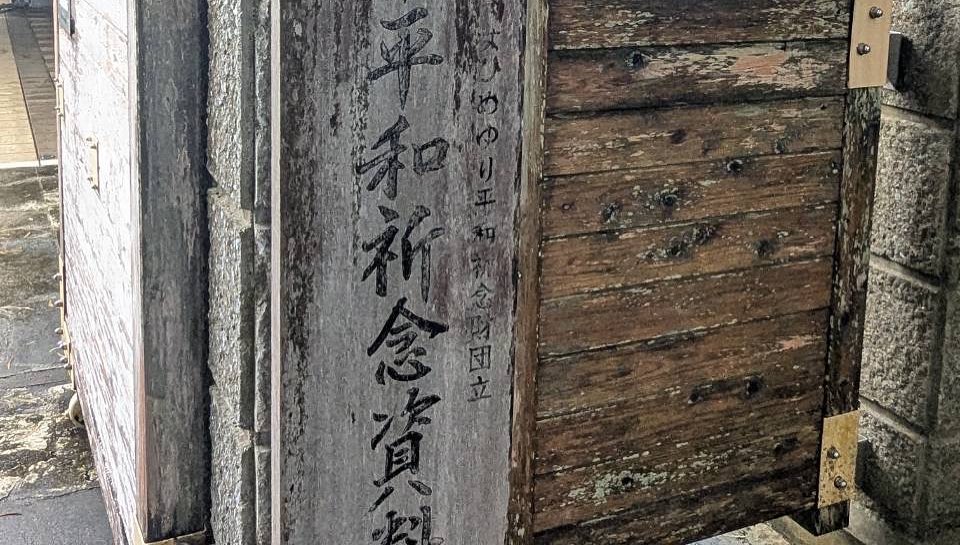 ひめゆり平和祈念財団立
平和祈念資料